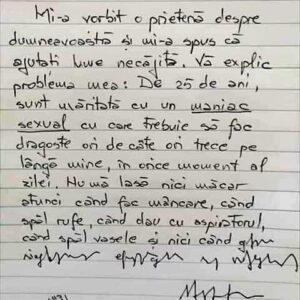 Mi-a vorbit o prietenă despre
dumneavoastră și mi-a spus că
ajutați lume necăjită. Vă explic
problema mea: De 25 de ani,
sunt măritată cu un maniac
sexual cu care trebuie să fac
dragoste ori de câte ori trece pe
lângă mine, în orice moment al
zilei. Nu mă lasă nici măcar
atunci când fac mâncare, când
spăl rufe, când dau cu aspiratorul,
când spăl vasele și nici când